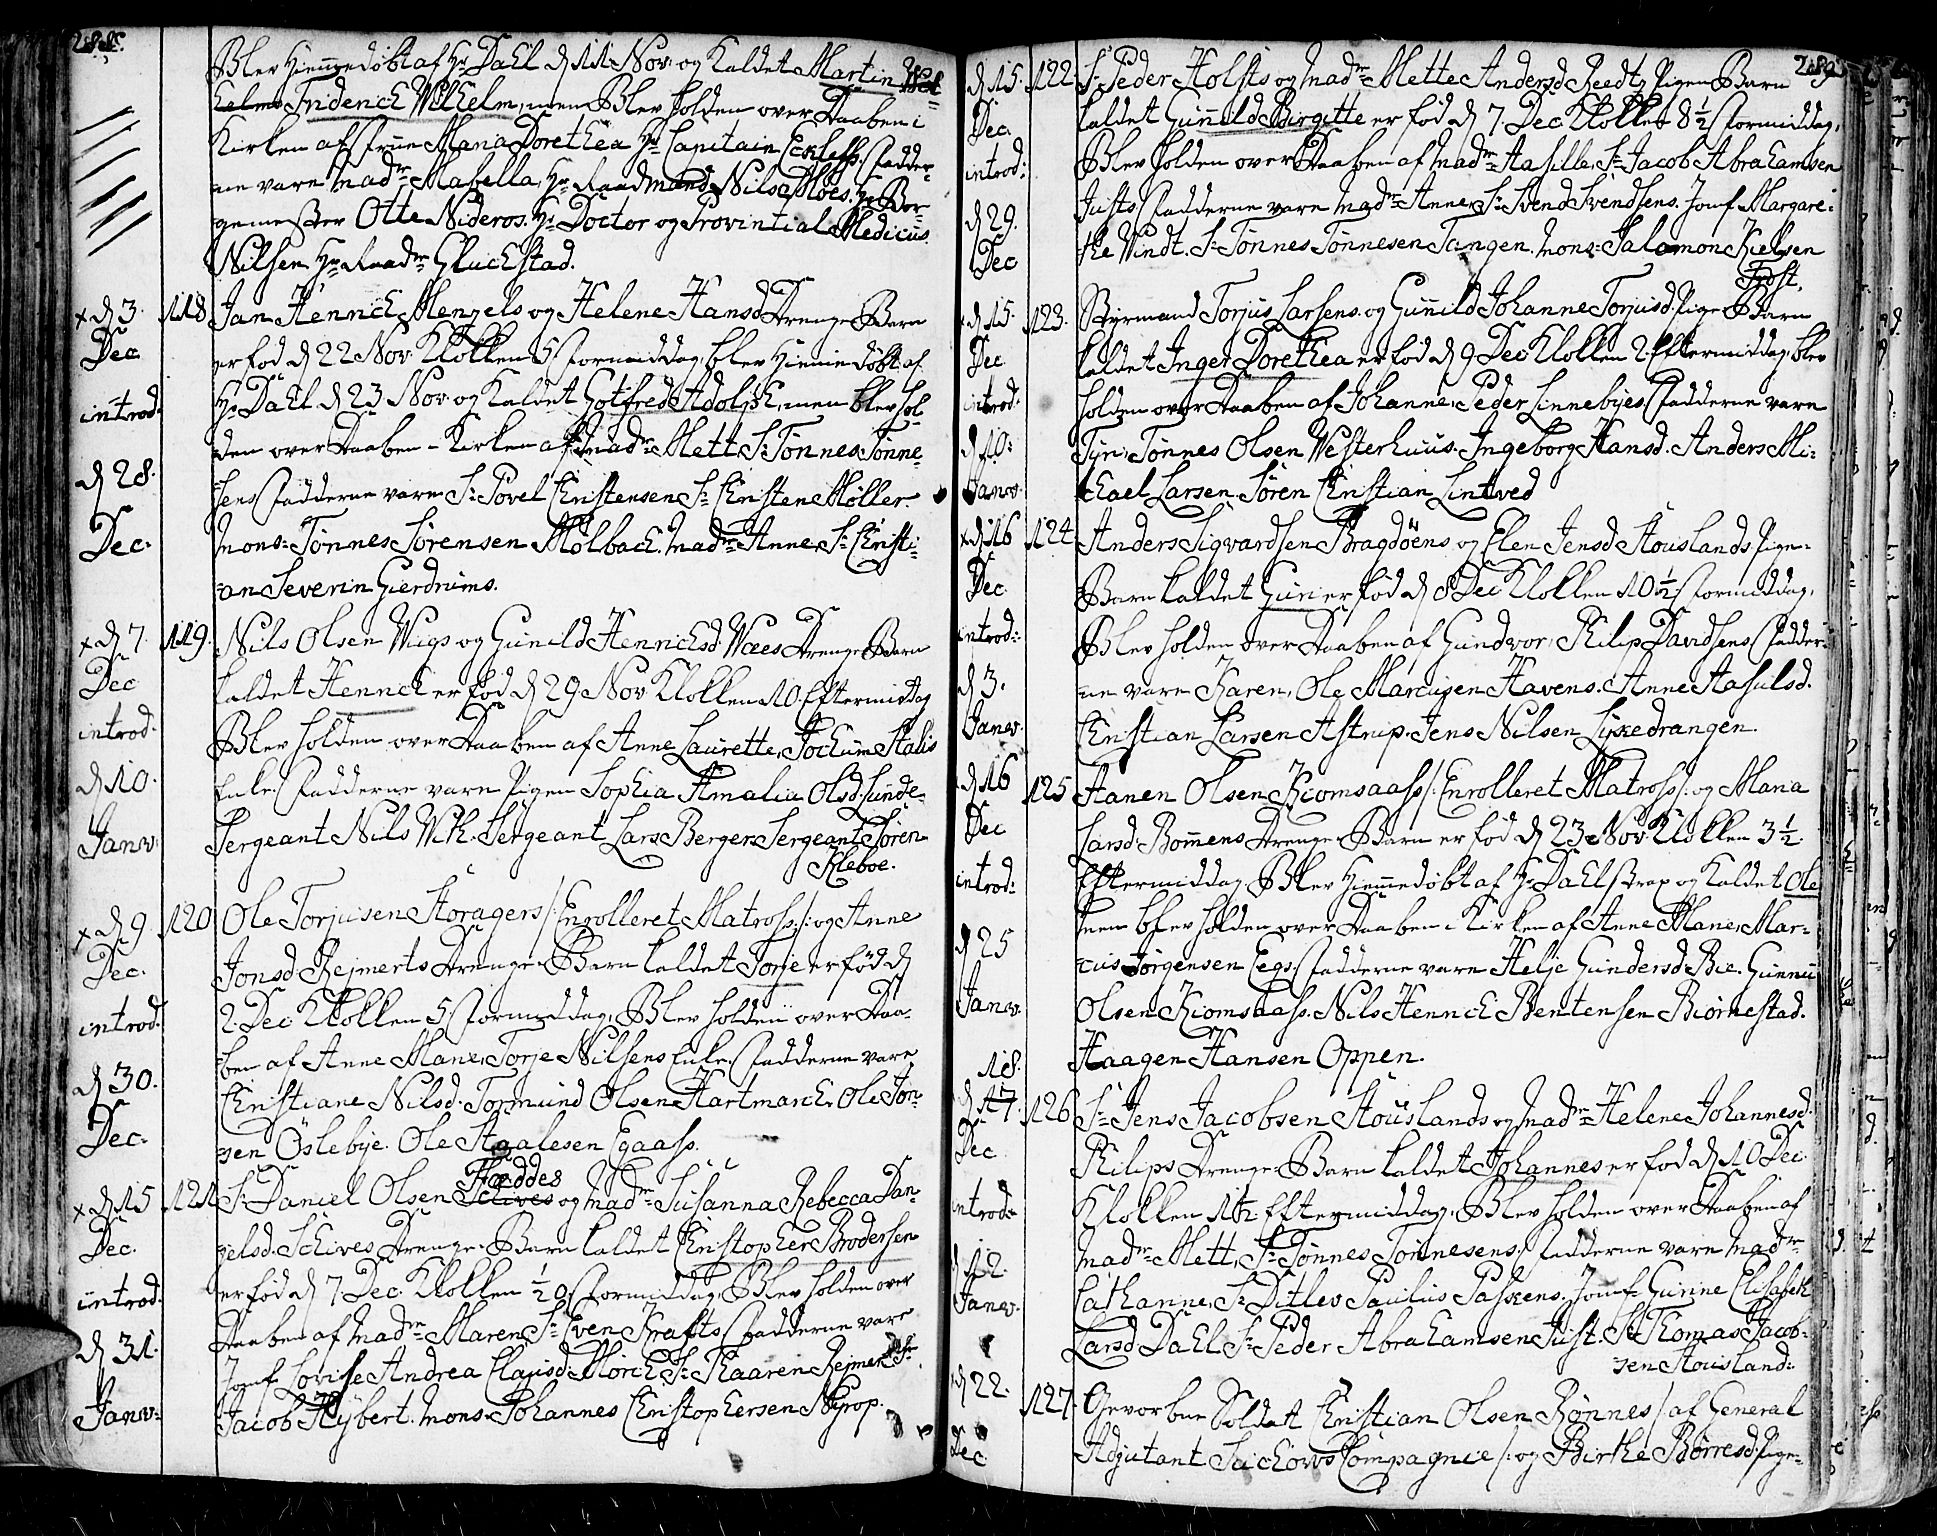 288.
Blev Hiemmedøbt af Hr Dahl d 11 Nov. og Kaldet Martin Wil-
helms Friderich Wilhelm, men Blev holden over Daaben i
Kirken af Frue Maria Dorethea Hr Capitain Ecklefs. Fadder-
ne vare Madme Mabella, Hr Raadmand Nils Moes. Hr Bor-
gemester Otte Nideros. Hr Doctor og Provintial Medicus
Nilsen Hr Raadm Gluckstad.
x d 3. Dec introd: d 28. Dec:
118 Jan Henrich Mengels og Helene Hansd Drenge Barn
er fød d 22 Nov. Klokken 5 Formiddag, blev Hiemmedøbt af
Hr Dahl d 23 Nov. og Kaldet Gotfred Adolph, men blev hol-
den over Daaben i Kirken af Madme Mett Sr Tønnes Tønne-
sens Fadderne vare Sr Povel Christensen Sr Christen Møller.
Mons: Tønnes Sørensen Mølback. Madme Anne, Sr Christi-
an Severin Gierdrums.
x d 7. Dec introd: d 10. Janv:
119. Nils Olsen Wigs og Gunild Henrichsd. Wees Drenge Barn
kaldet Henrich er fød d 29 Nov Klokken 10. Eftermiddag
Blev holden over Daaben af Anne Laurette, Jochum Stabis
Enke. Fadderne vare Pigen Sophia Amalia Olsd. Sunde-
Sergeant Nils Wik. Sergeant Lars Berger Sergeant Søren
Kleboe.
x d 9. Dec. introd. d 30. Dec.
120 Ole Torjusen Storagers /: Enrolleret Matrofs :/ og Anne
Jonsd Rejmerts Drenge Barn kaldet Torje er fød d
2. Dec Klokken 5 Formiddag, Blev holden over Daa-
ben af Anne Marie, Torje Nilsens Enke. Fadderne vare
Christiane Nilsd. Tormund Olsen Hartmarck. Ole Jon-
sen Oslebye. Ole Staalesen Egaass.
x d 15 Dec. introd: d 31. Janv:
121. Sr Daniel Olsen Schives Fæddes og Madme Susanna Rebecca Dan-
ielsd. Schives Drenge Barn kaldet Christopher Brodersen
er fød d 7 Dec Klokken 1/2 9 Formiddag, Blev holden over
Daaben af Madme Maren Sr Even Krafts Fadderne vare
Jomf Lovise Andrea Clausd. Mørch Sr Kaaren Rejmert Sr
Jacob Hybert. Mons. Johannes Christophersen Nyrop.
289.
d 15. Dec. introd: d 29. Dec
122. Sr Peder Holsts og Madme Mette Andersd Reedtz Pigen Barn
kaldet Gunild Birgitte er fød d 7. Dec Klokket 8 1/2 Formiddag,
Blev holden over Daaben af Madme Aasille, Sr Jacob Abrahamsen
Justs Fadderne vare Madme Anne, Sr Svend Svendsens. Jomf Margare-
the Windt. Sr Tønnes Tønnesen Tangen. Mons: Salamon Kielsen
Tydst.
x d 15. Dec introd: d 10: Janv
123. Styrmand Torjus Larsens og Gunild Johanne Torjusd Pige Barn
kaldet Inger Dorethea er fød d 9 Dec Klokken 2 Eftermiddag, blev
holden over Daaben af Johanne, Peder Linnebyes Fadderne vare
Tyri, Tønnes Olsen Westerhuus. Ingeborg Hansd. Anders Mi-
chael Larsen Søren Christian Lintved
x d 16 Dec introd: d 3. Janv:
124 Anders Sigvardsen Bragdøens og Elen Jensd Stouslands Pige-
Barn kaldet Guri er fød d 8 Dec Klokken 10 1/2 Formiddag,
Blev holden over Daaben af Gundvor, Philip Davidsens Fadder-
ne vare Karen, Ole Marcusen Havens. Anne Aasulsd.
Christian Larsen Astrup. Jens Nilsen Lyxedrangen.
d 16 Dec introd: d 25 Janv.
125 Hanen Olsen Kiomsaass /: Enrolleret Matrofs :/ og Maria
Larsd. Bommens Drenge Barn er fød d 23 Nov. Klokken 3 1/2.
Eftermiddag Blev Hiemmedøbt af Hr Dahl strax og Kaldet Ole
men blev holden over Daaben i Kirken af Anne Marie, Mar-
cus Jørgensen Eegs. Fadderne vare Helje Gundersd Bie. Gunnu
Olsen Kiomsaass. Nils Henrich Bentensen Biørnestad.
Haagen Hansen Oppen.
18. d 17. Dec introd: d 12. Janv.
126 Sr Jens Jacobsen Stouslands og Madme Helene Johannesd.
Philips Drenge Barn kaldet Johannes er fød d 10 Dec
Klokken 1 1/2. Eftermiddag. Blev holden over Daaben af
Madme Mett, Sr Tønnes Tønnesens: Fadderne vare Madme
Cathanne, Sr Ditlev Paulus Paskens. Jomf: Gurine Elisabeth
Larsd Dahl Sr Peder Abrahamsen Just. Sr Thomas Jacob-
sen Stousland:
d 22. Dec
127. Gevorbne Soldat Christian Olsen Rønnes /: af General
Adjutant Suchows Compagnie :/ og Birthe Børresd. Pige-